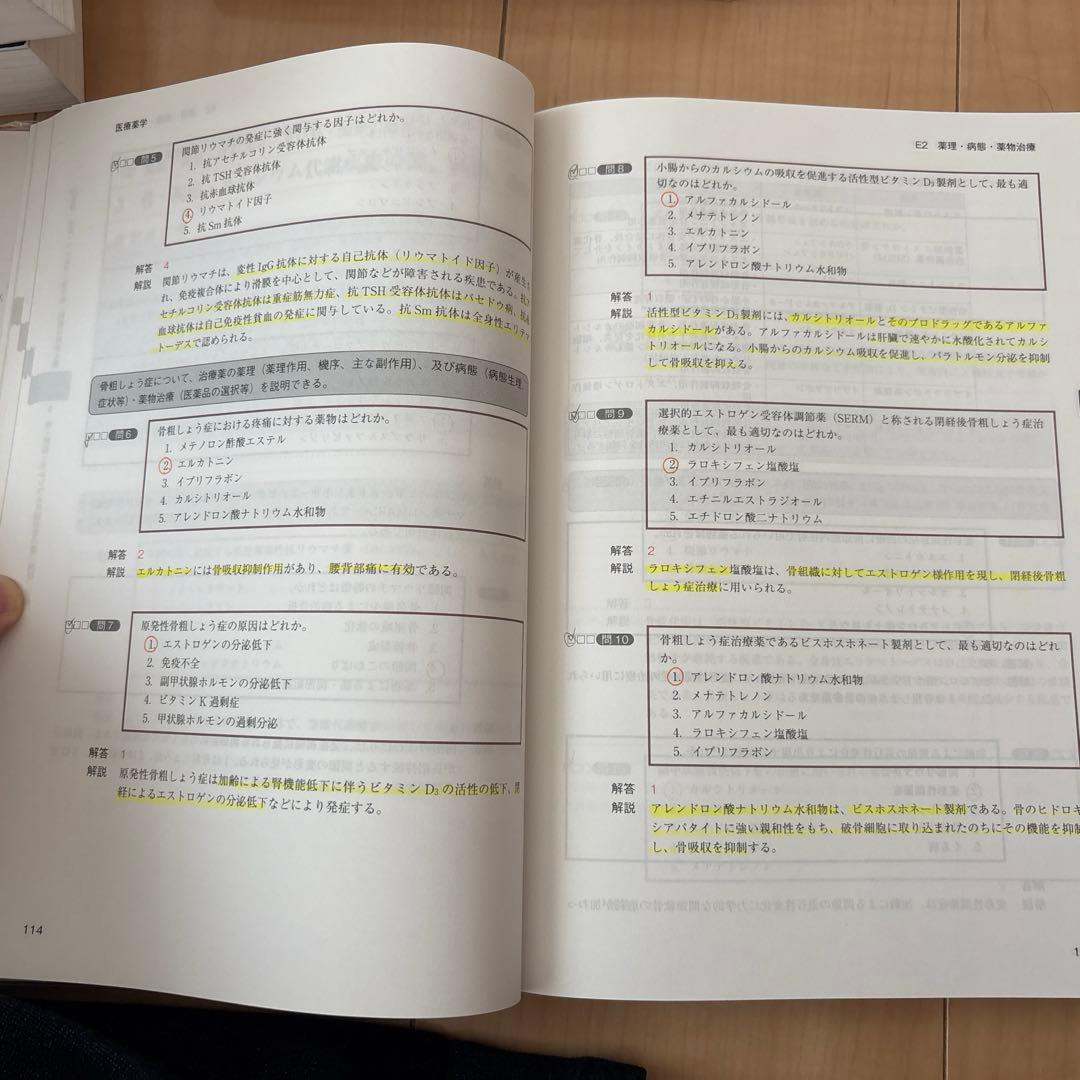 医療薬学
問5
関節リウマチの発症に強く関与する因子はどれか。
1. 抗アセチルコリン受容体抗体
2. 抗TSH受容体抗体
3. 抗赤血球抗体
4. リウマトイド因子
5. 抗Sm抗体
解答 4
解説 関節リウマチは、変性IgG抗体に対する自己抗体（リウマトイド因子）が産生
れ、免疫複合体により滑膜を中心として、関節などが障害される疾患である。抗ア
セチルコリン受容体抗体は重症筋無力症、抗TSH受容体抗体はバセドウ病、抗赤
血球抗体は自己免疫性貧血の発症に関与している。抗Sm抗体は全身性エリテマ
トーデスで認められる。
骨粗しょう症について、治療薬の薬理（薬理作用、機序、主な副作用）、及び病態（病態生理、
症状等）・薬物治療（医薬品の選択等）を説明できる。
問6
骨粗しょう症における疼痛に対する薬物はどれか。
1. メテノロン酢酸エステル
2. エルカトニン
3. イプリフラボン
4. カルシトリオール
5. アレンドロン酸ナトリウム水和物
解答 2
解説 エルカトニンには骨吸収抑制作用があり、腰背部痛に有効である。
問7
原発性骨粗しょう症の原因はどれか。
1. エストロゲンの分泌低下
2. 免疫不全
3. 副甲状腺ホルモンの分泌低下
4. ビタミンK過剰症
5. 甲状腺ホルモンの過剰分泌
解答 1
解説 原発性骨粗しょう症は加齢による腎機能低下に伴うビタミンD₃の活性の低下、閉
経によるエストロゲンの分泌低下などにより発症する。
114
E2 薬理・病態・薬物治療
問8
小腸からのカルシウムの吸収を促進する活性型ビタミンD₃製剤として、最も適
切なのはどれか。
1. アルファカルシドール
2. メナテトレノン
3. エルカトニン
4. イプリフラボン
5. アレンドロン酸ナトリウム水和物
解答 1
解説 活性型ビタミンD₃製剤には、カルシトリオールとそのプロドラッグであるアルファ
カルシドールがある。アルファカルシドールは肝臓で速やかに水酸化されてカルシ
トリオールになる。小腸からのカルシウム吸収を促進し、パラトルモン分泌を抑制
して骨吸収を抑える。
問9
選択的エストロゲン受容体調節薬（SERM）と称される閉経後骨粗しょう症治
療薬として、最も適切なのはどれか。
1. カルシトリオール
2. ラロキシフェン塩酸塩
3. イプリフラボン
4. エチニルエストラジオール
5. エチドロン酸二ナトリウム
解答 2
解説 ラロキシフェン塩酸塩は、骨組織に対してエストロゲン様作用を現し、閉経後骨粗
しょう症治療に用いられる。
問10
骨粗しょう症治療薬であるビスホスホネート製剤として、最も適切なのはどれ
か。
1. アレンドロン酸ナトリウム水和物
2. メナテトレノン
3. アルファカルシドール
4. ラロキシフェン塩酸塩
5. イプリフラボン
解答 1
解説 アレンドロン酸ナトリウム水和物は、ビスホスホネート製剤である。骨のヒドロキ
シアパタイトに強い親和性をもち、破骨細胞に取り込まれたのちにその機能を抑制
し、骨吸収を抑制する。